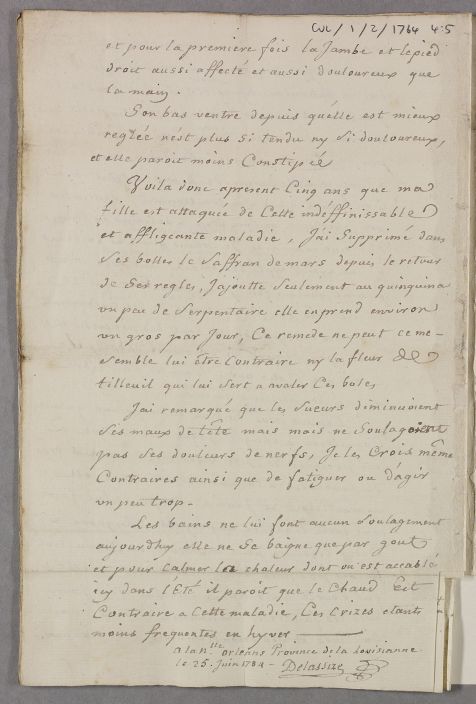 CUL/1/2/1764 4:5
et pour la premiere fois la Jambe et le pied
droit aussi affecté et aussi douloureux que
la main.
Son bas ventre depuis quélle est mieux
reglée nést plus si tendu ny si douloureux,
et elle paroit moins Constipée
Voila donc apresent Cinq ans que ma
fille est attaquée de Cette indéffinissable
et affligeante maladie, J'ai Supprimé dans
Ses bolles le Saffran de mars depuis le retour
de Ses regles, J'ajoutte Seulement au quinquina
un peu de Serpentaire elle en prend environ
un gros par Jour, Ce remede ne peut ce me-
semble lui être Contraire ny la fleur de
tilleuil qui lui sert a avaler Ces boles
J'ai remarqué que les Sueurs diminuoient
Ses maux de tête mais mais ne Soulagoient
pas Ses douleurs de nerfs, Je les Crois même
Contraires ainsi que de fatiguer ou d'agir
un peu trop.
Les bains ne lui font aucun Soulagement
aujourdhy elle ne Se baigne que par gout
et pour Calmer la chaleur dont on est accablé
icy dans l'Eté il paroit que le Chaud Est
Contraire a Cette maladie, Ces Crizes etant
moins frequentes en hyver
a la n.lle orleans Province de la Louisianne
le 25 Juin 1784 - Delassize